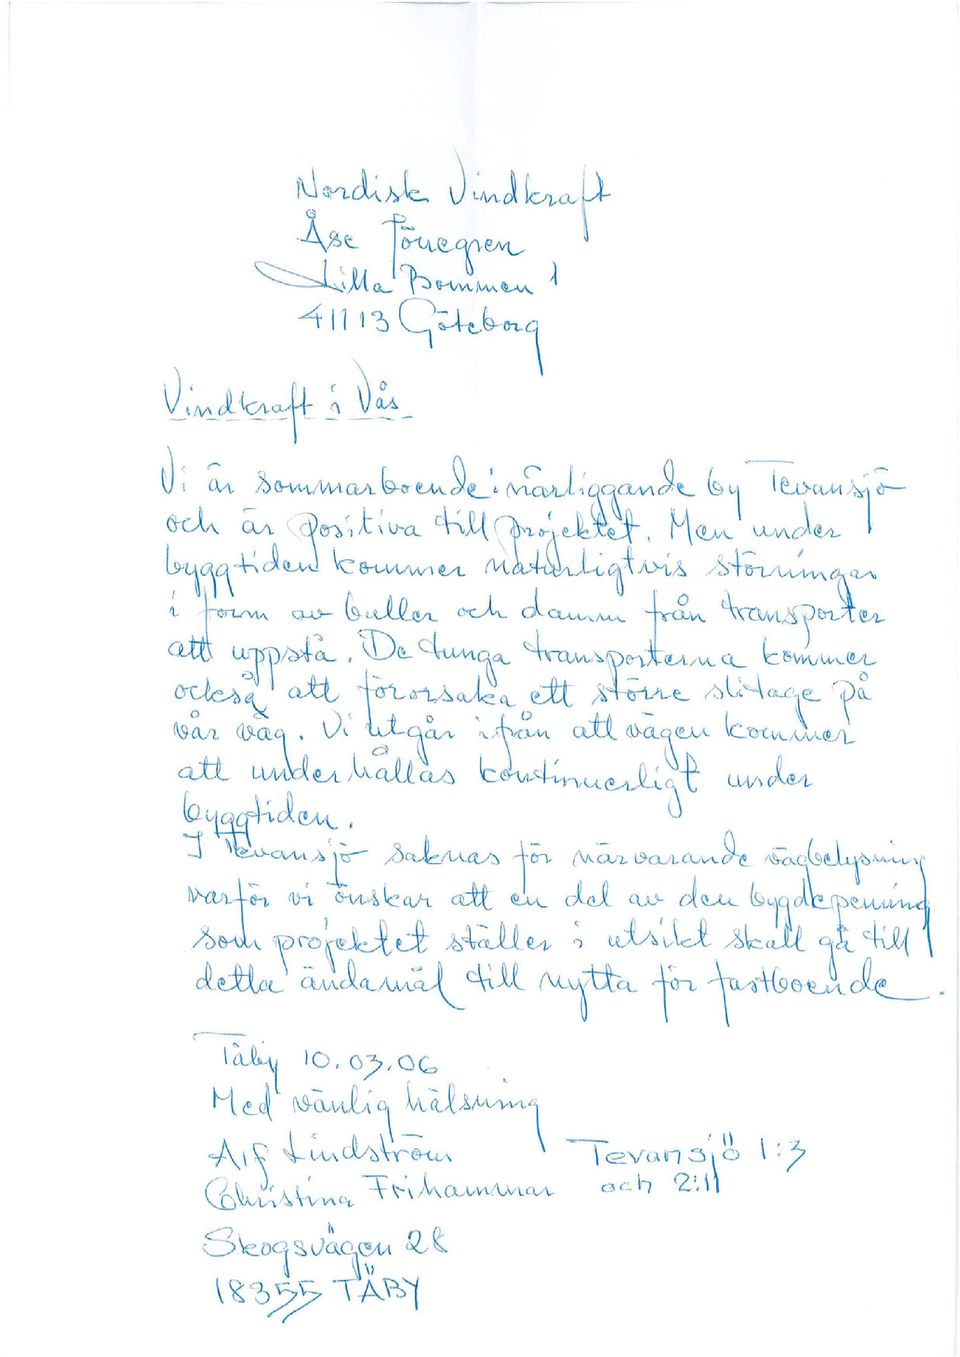 Nordisk Vindkraft
Åse Törregren
Lilla Bommen 1
41113 Göteborg
Vindkraft i Vås
Vi är sommarboende i närliggande by Tevansjö
och är positiva till projektet. Men under
byggtiden kommer naturligtvis störningar
i form av buller och damm från transporter
att uppstå. De tunga transporterna kommer
också att förorsaka ett större slitage på
vår väg. Vi utgår ifrån att vägen kommer
att underhållas kontinuerligt under
byggtiden.
I Tevansjö saknas för närvarande vägbelysning
varför vi önskar att en del av den bygdepenning
som projektet ställer i utsikt skall gå till
detta ändamål till nytta för fastboende.
Täby 10.03.06
Med vänlig hälsning
Alf Lindström Tevansjö 1:3
Christina Frihammar och 2:11
Skogsvägen 28
18355 TÄBY